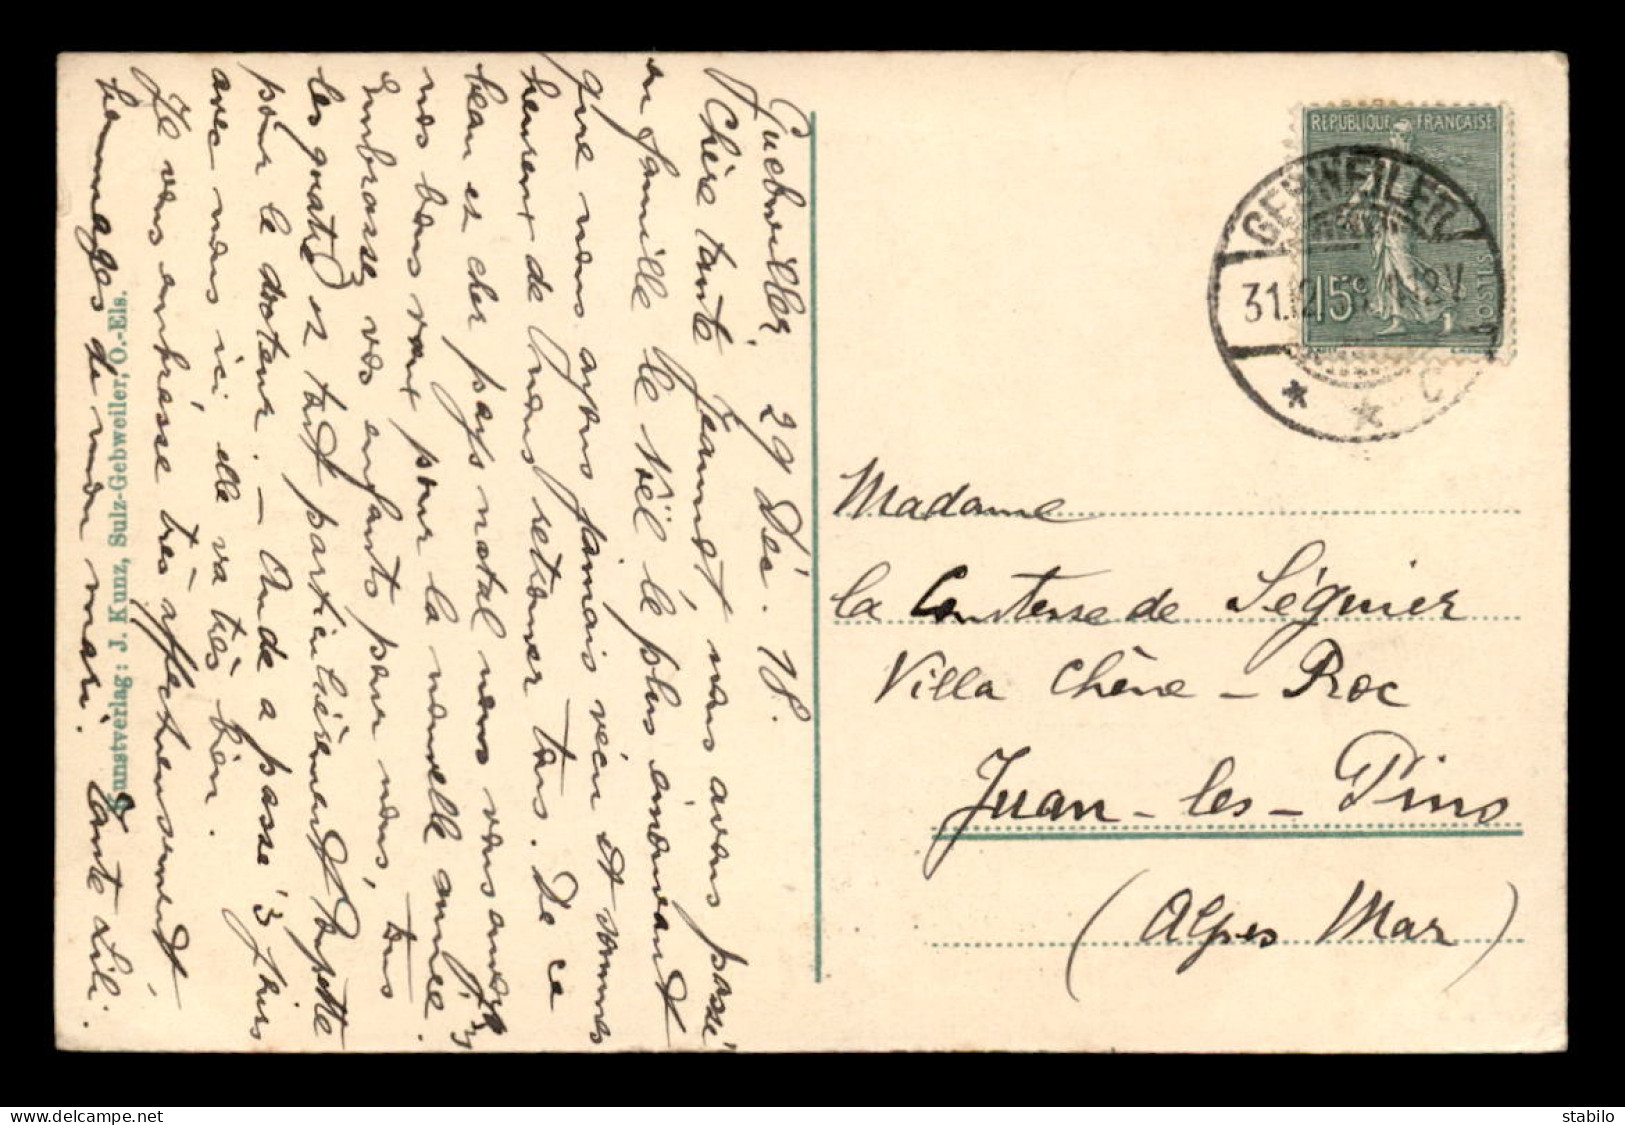 Guebwiller 29 Déc. 18.
Chère tante Jeannot, nous avons passé
en famille le Noël le plus émouvant
que nous ayons jamais vécu et sommes
heureux de vous retrouver tous. De ce
beau et cher pays natal nous vous
nos bons vœux pour la nouvelle année.
Embrassez vos enfants pour nous, tous
les quatre et tout particulièrement
pour le docteur. — Aude a passé 3 jours
avec nous ici elle va très bien.
Je vous embrasse très affectueusement
hommages de mon mari. Tante Lili.
Kunstverlag: J. Kunz, Sulz-Gebweiler, O.-Els.
REPUBLIQUE FRANÇAISE
15c
POSTES
GEBWEILER
31.12
* * C
Madame
la Comtesse de Séguier
Villa Chêne-Roc
Juan-les-Pins
(Alpes Mar)
stabilo
delcampe.net